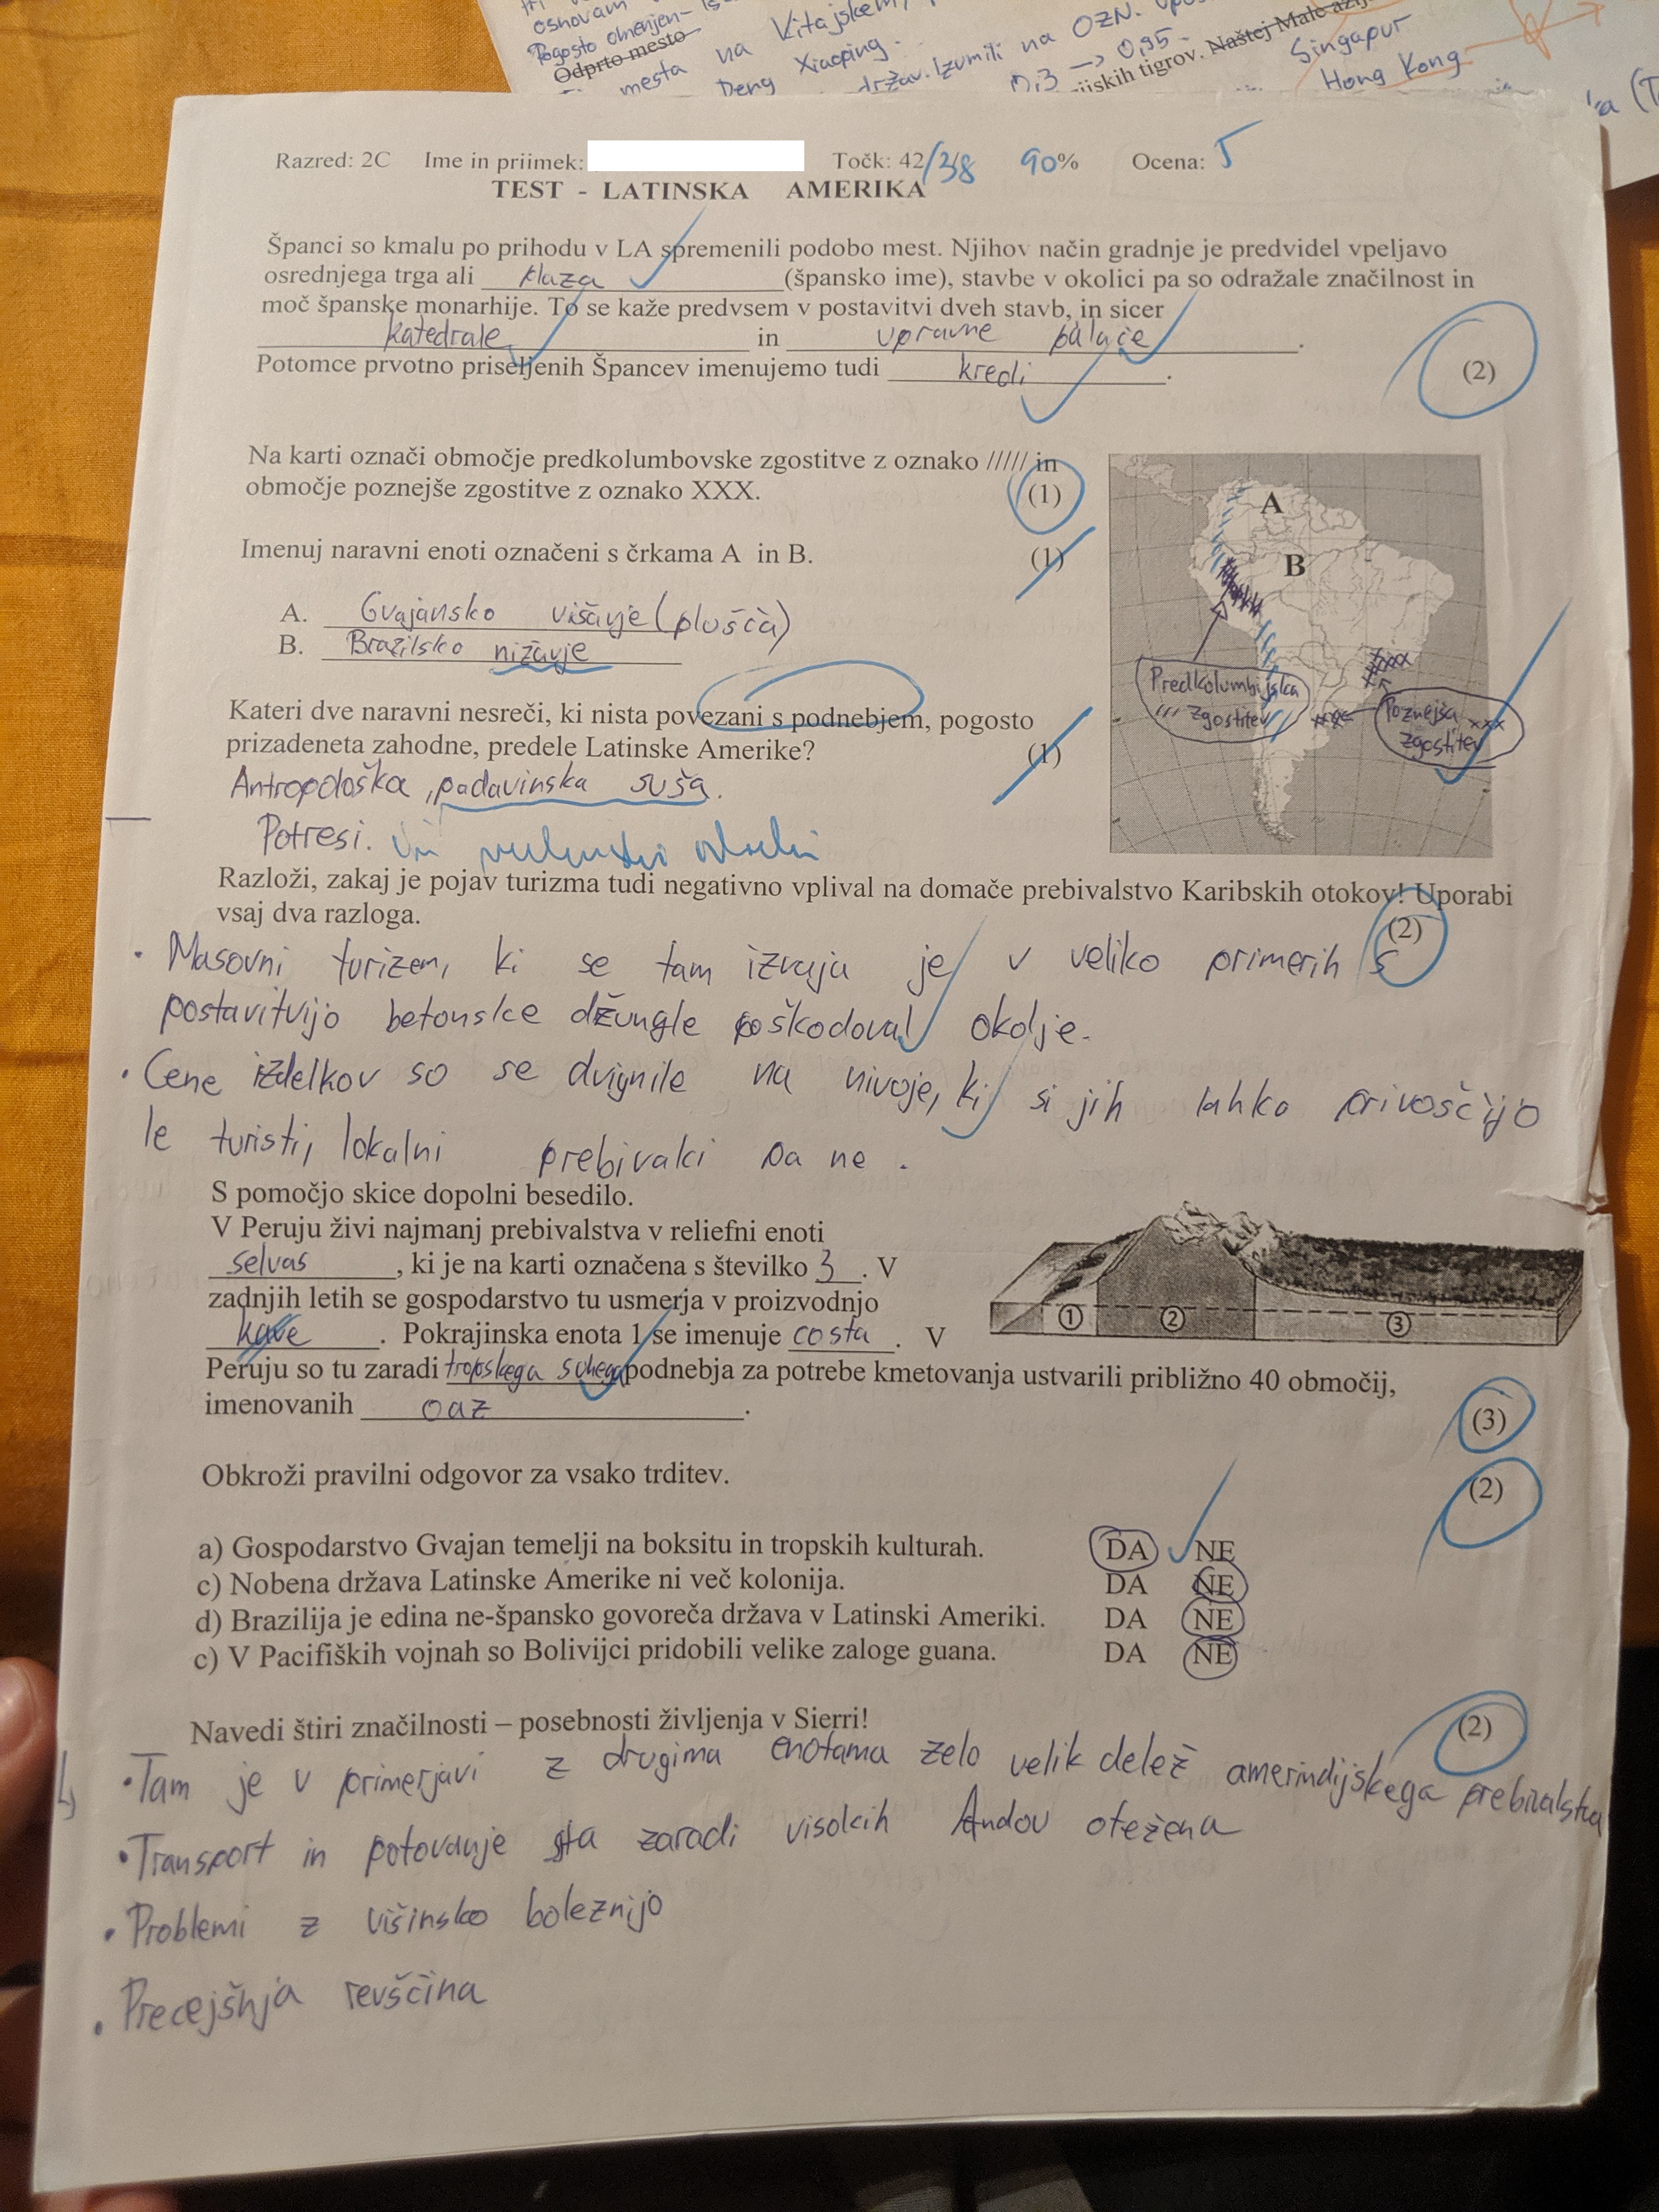 osnovam
Pogosto omenjen-
Odprto mesto
mesta na Kitajskem,
Deng Xiaoping.
držav. Izumili na OZN.
0,3 → 0,95.
ijskih tigrov. Naštej Male azij
Singapur
Hong Kong
Razred: 2C Ime in priimek: Točk: 42/38 90% Ocena: 5
TEST - LATINSKA AMERIKA
Španci so kmalu po prihodu v LA spremenili podobo mest. Njihov način gradnje je predvidel vpeljavo
osrednjega trga ali plaza (špansko ime), stavbe v okolici pa so odražale značilnost in
moč španske monarhije. To se kaže predvsem v postavitvi dveh stavb, in sicer
katedrale in upravne palače.
Potomce prvotno priseljenih Špancev imenujemo tudi kreoli.
(2)
Na karti označi območje predkolumbovske zgostitve z oznako ///// in
območje poznejše zgostitve z oznako XXX. (1)
Imenuj naravni enoti označeni s črkama A in B. (1)
A. Gvajansko višavje (plošča)
B. Brazilsko nižavje
A
B
Predkolumbijska
/// zgostitev
Poznejša xxx
zgostitev
Kateri dve naravni nesreči, ki nista povezani s podnebjem, pogosto
prizadeneta zahodne, predele Latinske Amerike? (1)
Antropološka, padavinska suša.
Potresi.
Razloži, zakaj je pojav turizma tudi negativno vplival na domače prebivalstvo Karibskih otokov! Uporabi
vsaj dva razloga. (2)
• Masovni turizem, ki se tam izvaja je v veliko primerih s
postavitvijo betonske džungle poškodoval okolje.
• Cene izdelkov so se dvignile na nivoje, ki si jih lahko privoščijo
le turisti, lokalni prebivalci pa ne.
S pomočjo skice dopolni besedilo.
V Peruju živi najmanj prebivalstva v reliefni enoti
selvas, ki je na karti označena s številko 3. V
zadnjih letih se gospodarstvo tu usmerja v proizvodnjo
kave. Pokrajinska enota 1 se imenuje costa. V
Peruju so tu zaradi tropskega suhega podnebja za potrebe kmetovanja ustvarili približno 40 območij,
imenovanih oaz.
1 2 3
(3)
Obkroži pravilni odgovor za vsako trditev. (2)
a) Gospodarstvo Gvajan temelji na boksitu in tropskih kulturah. DA NE
c) Nobena država Latinske Amerike ni več kolonija. DA NE
d) Brazilija je edina ne-špansko govoreča država v Latinski Ameriki. DA NE
c) V Pacifiških vojnah so Bolivijci pridobili velike zaloge guana. DA NE
Navedi štiri značilnosti – posebnosti življenja v Sierri! (2)
• Tam je v primerjavi z drugima enotama zelo velik delež amerindijskega prebivalstva
• Transport in potovanje sta zaradi visokih Andov otežena
• Problemi z višinsko boleznijo
• Precejšnja revščina